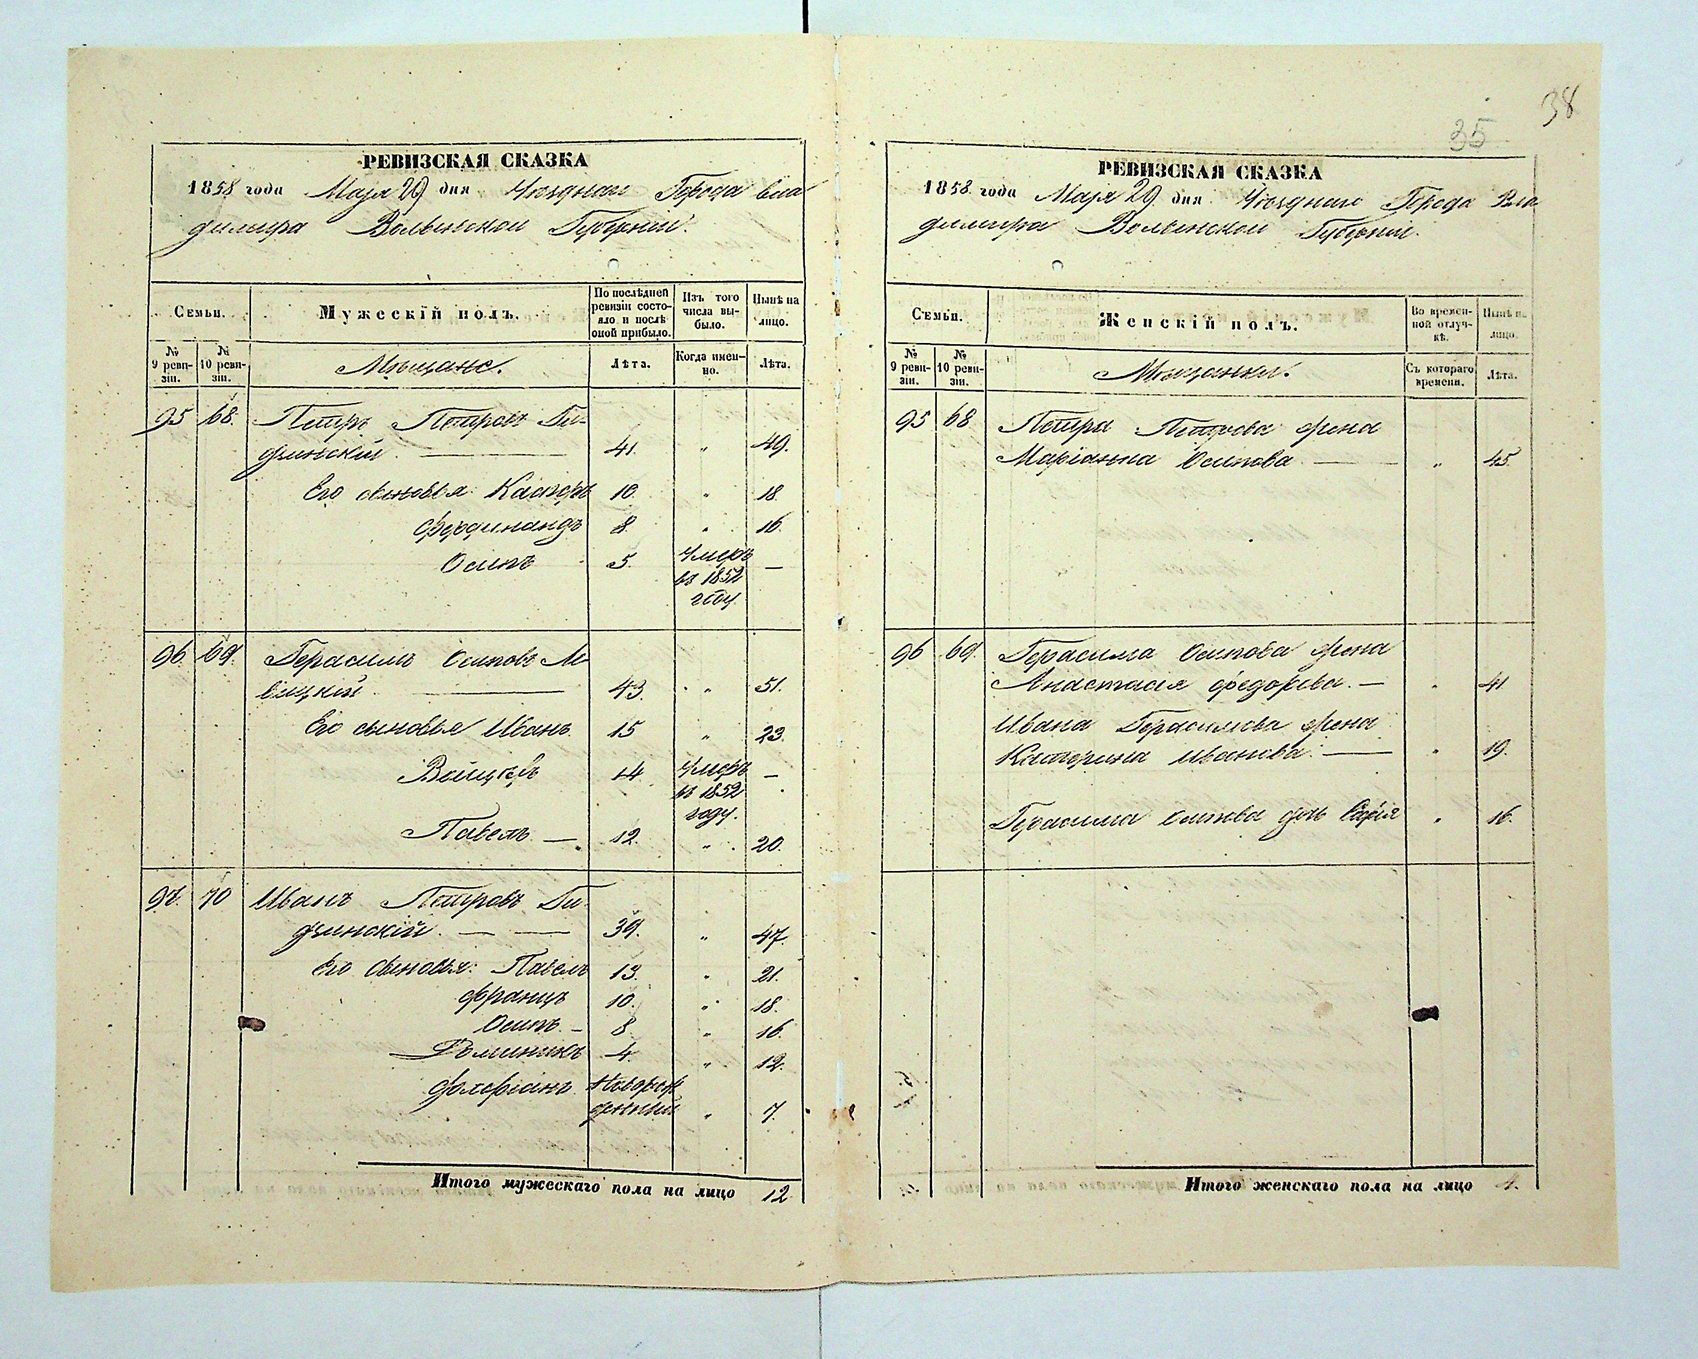 38
35
РЕВИЗСКАЯ СКАЗКА
1858 года Маја 29 дня Уѣзднаго Города Вла
димира Волынской Губерніи.
Семьи.
Мужескій полъ.
По послѣдней ревизіи состояло и послѣ оной прибыло.
Изъ того числа выбыло.
Нынѣ на лицо.
№ 9 ревизіи.
№ 10 ревизіи.
Мѣщане.
Лѣта.
Когда именно.
Лѣта.
95 68. Петръ Петровъ
41. " 49.
Его сыновья: Касперъ 10. " 18.
Фердинандъ 8. " 16.
Осипъ 5. Умеръ въ 1852 году. —
96. 69. Герасимъ Осиповъ
43. " 51.
Его сыновья Иванъ 15 " 23.
14 Умеръ въ 1852 году. —
Павелъ — 12. " 20.
97. 70 Иванъ Петровъ
39. " 47.
Его сыновья: Павелъ 13. " 21.
Францъ 10. " 18.
Осипъ — 8. " 16.
Доминикъ 4. " 12.
Новорожденный " 7.
Итого мужескаго пола на лицо 12
РЕВИЗСКАЯ СКАЗКА
1858 года Маја 29 дня Уѣзднаго Города Вла
димира Волынской Губерніи.
Семьи.
Женскій полъ.
Во временной отлучкѣ.
Нынѣ на лицо.
№ 9 ревизіи.
№ 10 ревизіи.
Мѣщанки.
Съ котораго времени.
Лѣта.
95 68 Петра Петрова жена
Маріанна Осипова — " 45.
96 69. Герасима Осипова жена
Анастасія Федорова — " 41
Ивана Герасимова жена
Катерина Иванова — " 19.
Герасима Осипова дочь Софія " 16.
Итого женскаго пола на лицо 4.